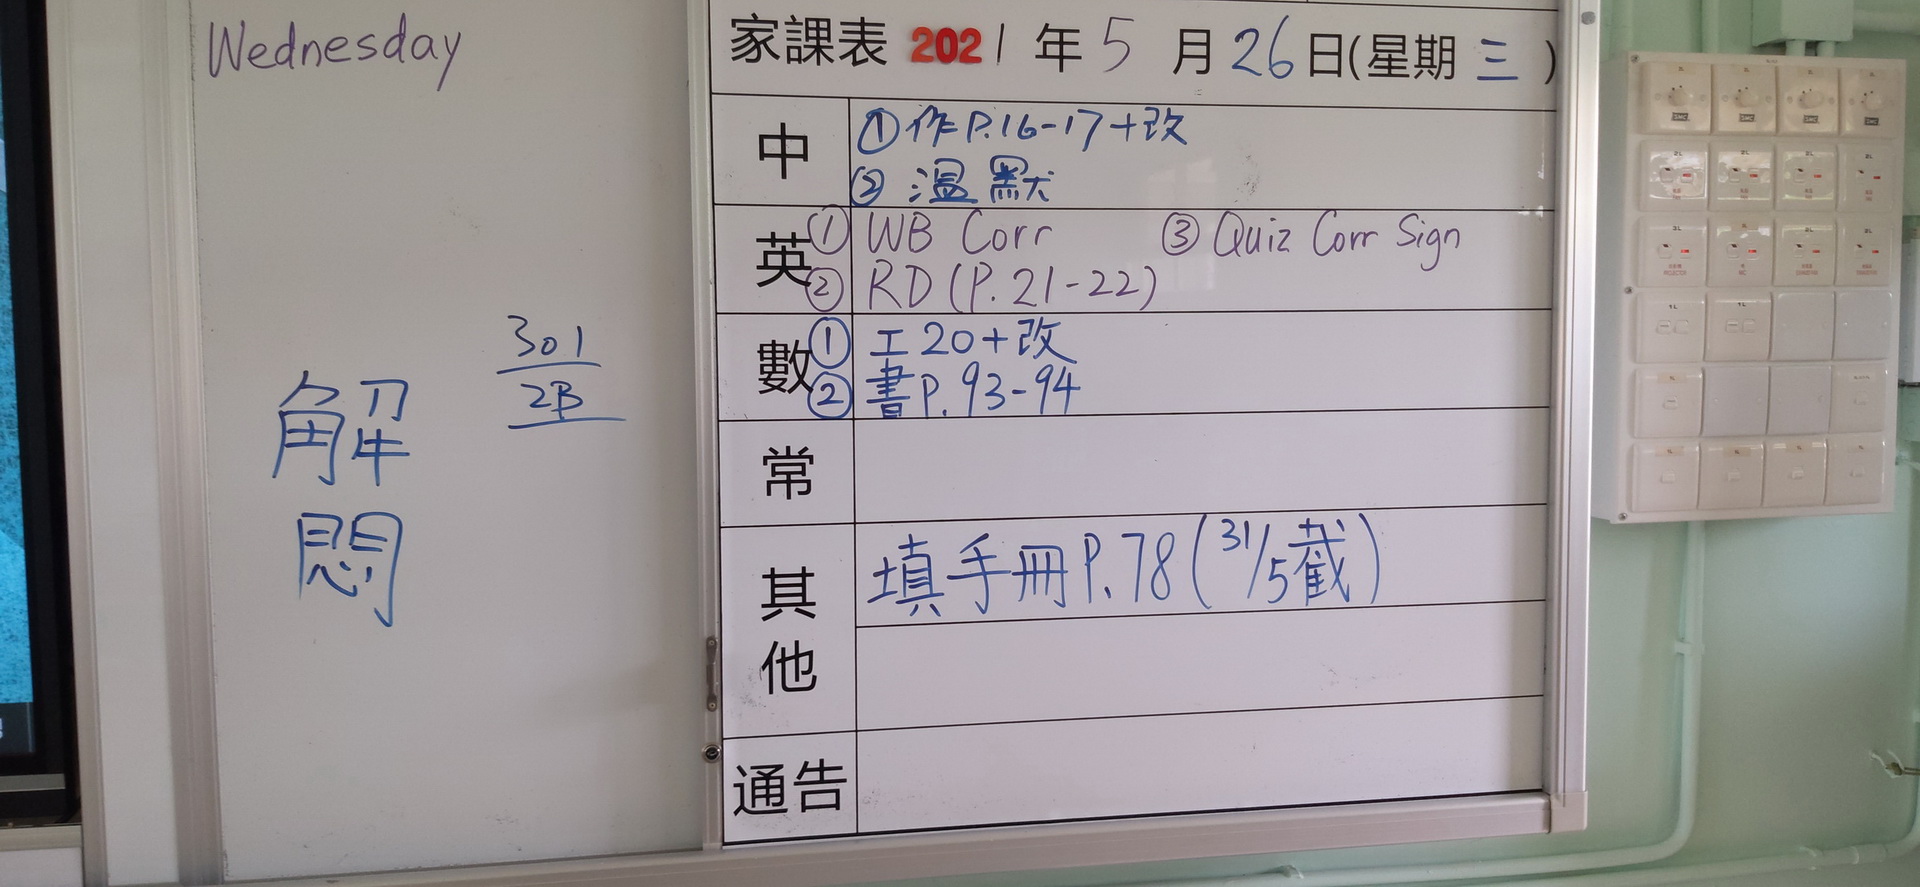 Wednesday
301
2B
解
悶
家課表 2021年5月26日(星期三)
中
①作P.16-17+改
②溫默
英
①WB Corr ③Quiz Corr Sign
②RD(P.21-22)
數
①工20+改
②書P.93-94
常
其他
填手冊P.78(31/5截)
通告